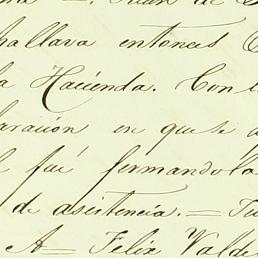 de
hallava entonces
la Hacienda. Con
aración en que se a
fué formandola
de asistencia. = Tu
A= Felix Valde